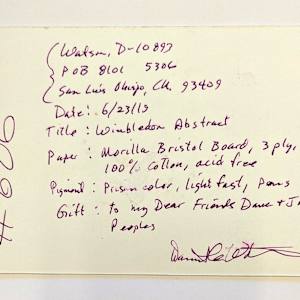 Watson, D-10897
POB 8101 5306
San Luis Obispo, CA. 93409
Date: 6/23/19
Title: Wimbledon Abstract
Paper: Morilla Bristol Board, 3 ply,
100% Cotton, acid free
Pigment: Prismacolor, lightfast, pens
Gift: To my Dear Friends Dave + J
Peoples
# 606